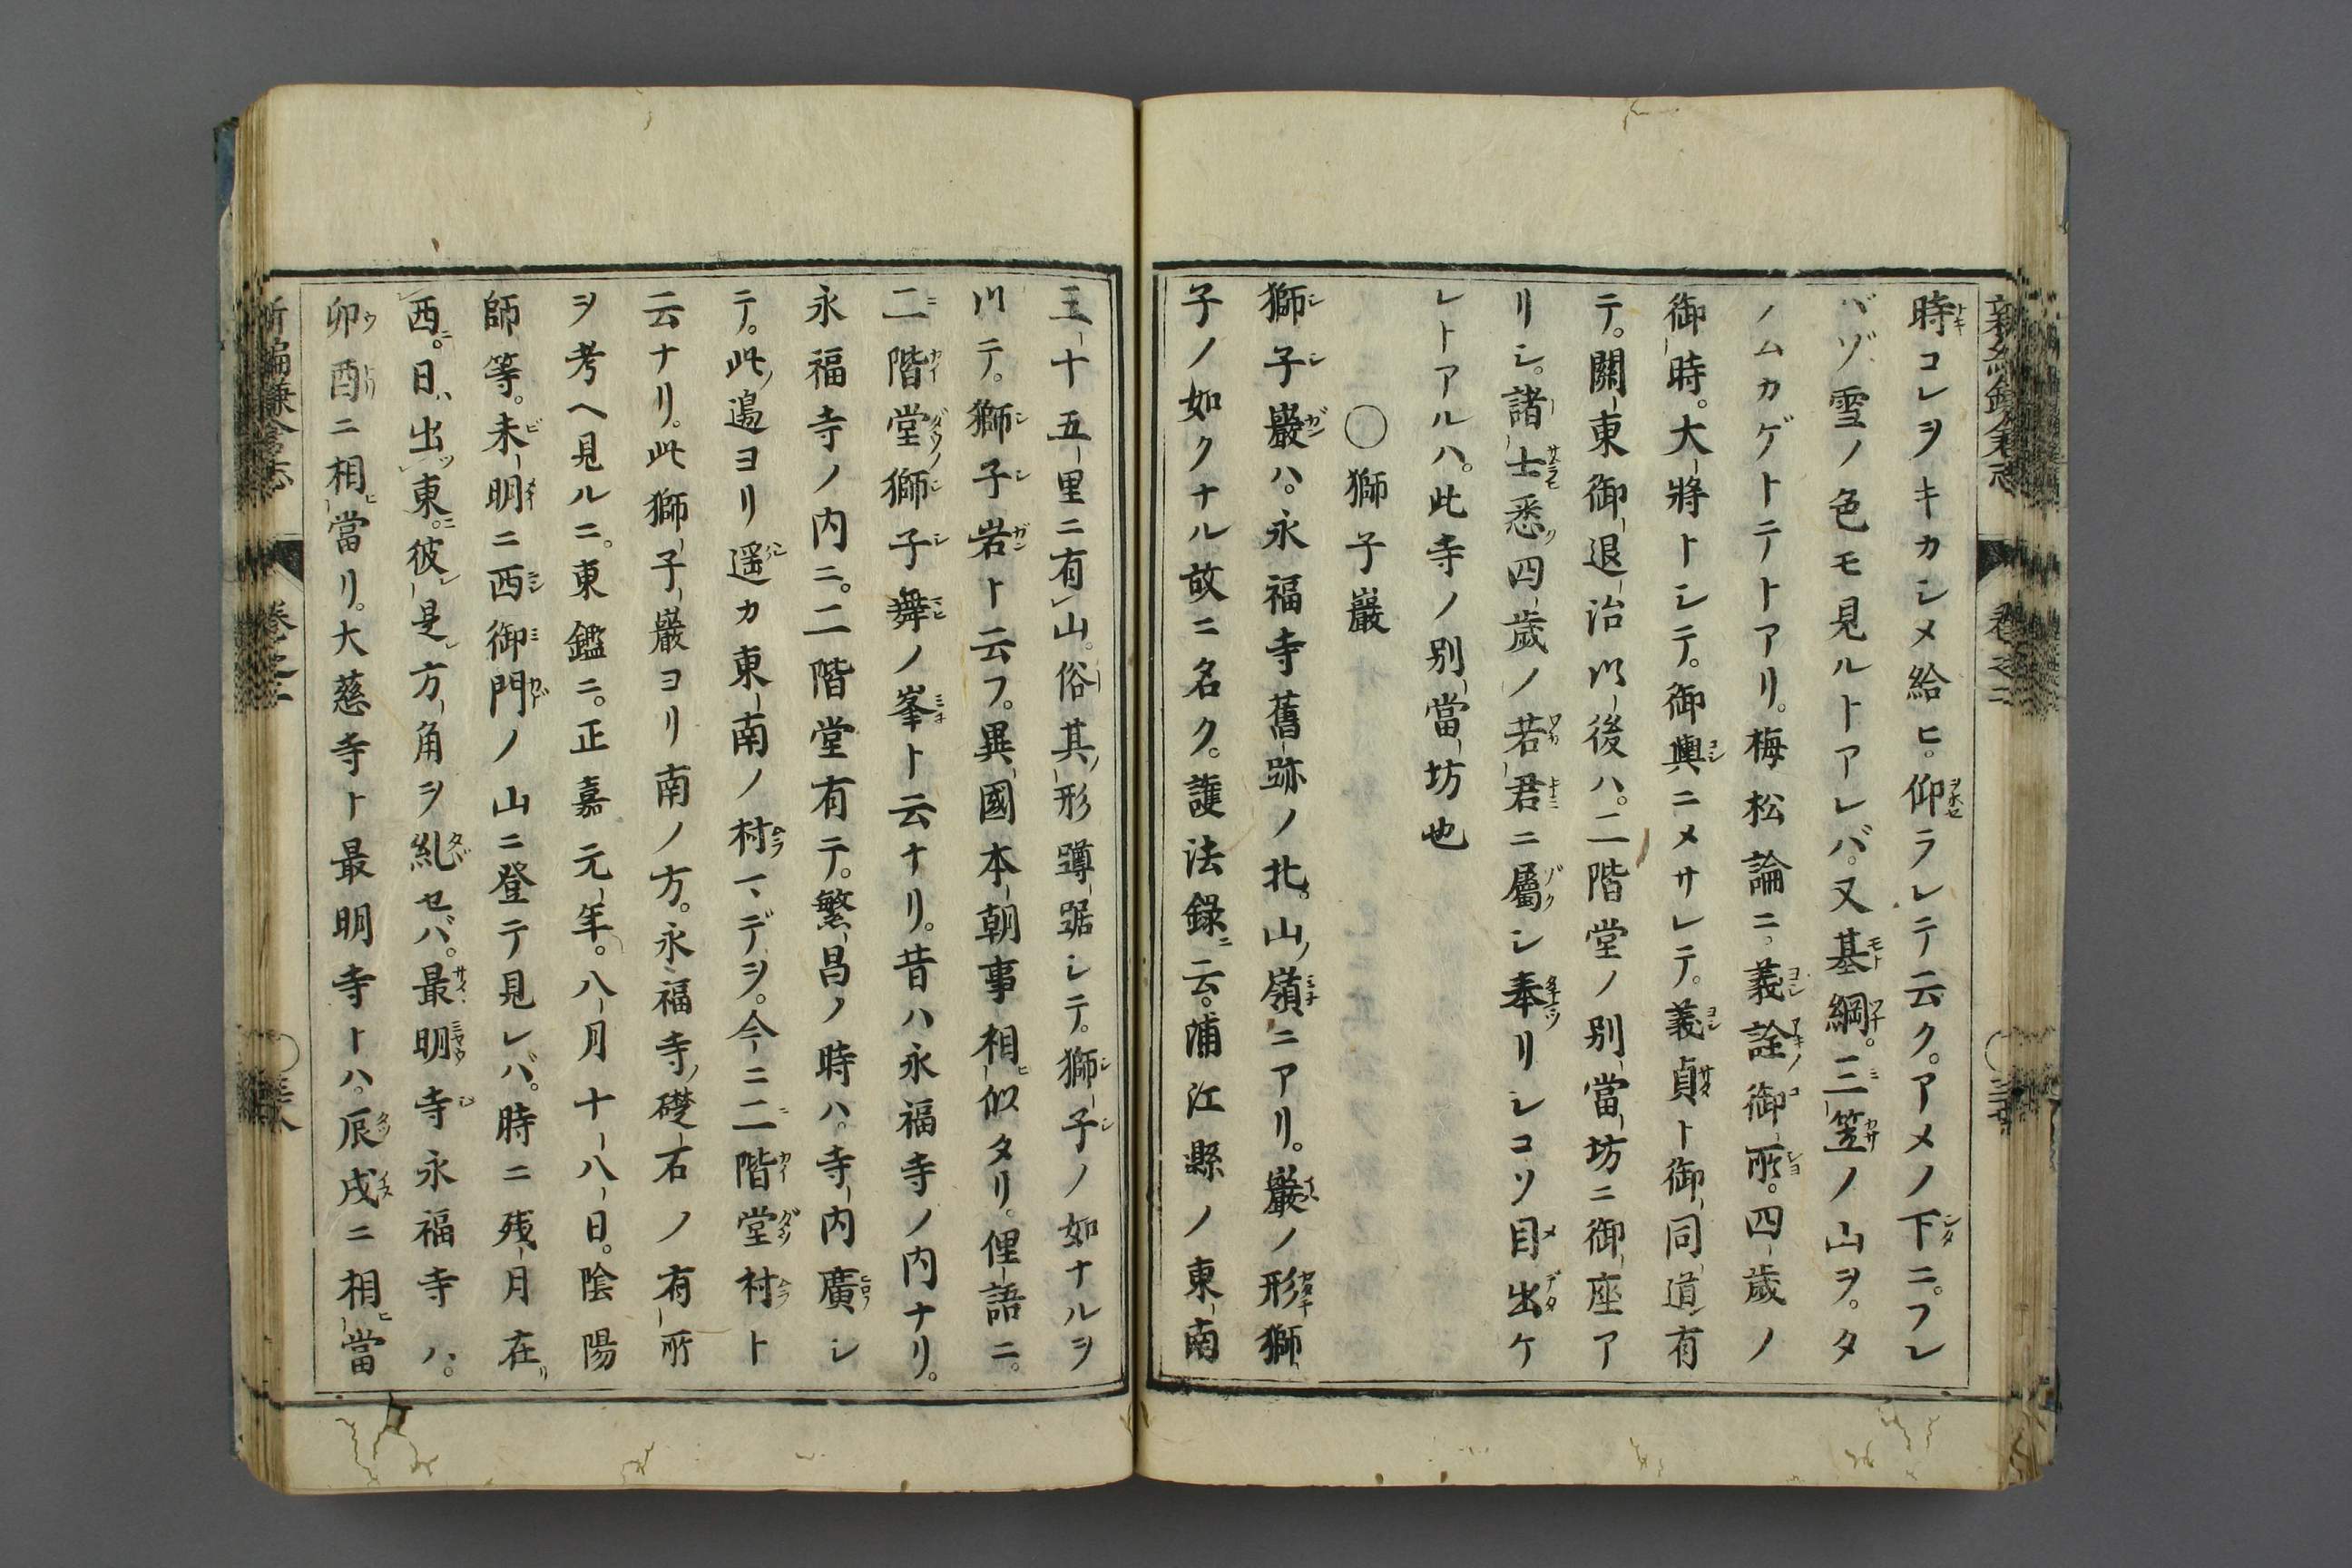 時コレヲキカシメ給ヒ。仰ラレテ云ク。アメノ下ニ。フレ
バゾ雪ノ色モ見ルトアレバ。又基綱。三笠ノ山ヲ。タ
ノムカゲトテトアリ。梅松論ニ。義詮御所。四歳ノ
御時。大將トシテ。御輿ニメサレテ。義貞ト御同道有
テ。關東御退治以後ハ。二階堂ノ別當坊ニ御座ア
リシ。諸士悉四歳ノ若君ニ屬シ奉リシコソ目出ケ
レトアルハ。此寺ノ別當坊也
○獅子巖
獅子巖ハ。永福寺舊跡ノ北。山ノ嶺ニアリ。巖ノ形獅
子ノ如クナル故ニ名ク。護法録ニ云。浦江縣ノ東南
三十五里ニ有レ山。俗其ノ形蹲踞シテ。獅子ノ如ナルヲ
以テ。獅子岩ト云フ。異國本朝事相似タリ。俚語ニ。
二階堂獅子舞ノ峯ト云ナリ。昔ハ永福寺ノ内ナリ。
永福寺ノ内ニ。二階堂有テ。繁昌ノ時ハ。寺内廣シ
テ。此ノ邉ヨリ遥カ東南ノ村マデヲ。今ニ二階堂村ト
云ナリ。此獅子巖ヨリ南ノ方。永福寺ノ礎石ノ有所
ヲ考ヘ見ルニ。東鑑ニ。正嘉元年。八月十八日。陰陽
師等。未明ニ西御門ノ山ニ登テ見レバ。時ニ残月在リ
西ニ。日ハ出ツ東ニ。彼是レ方角ヲ糺セバ。最明寺永福寺ハ。
卯酉ニ相當リ。大慈寺ト最明寺トハ。辰戌ニ相當
新編鎌倉志 卷之二